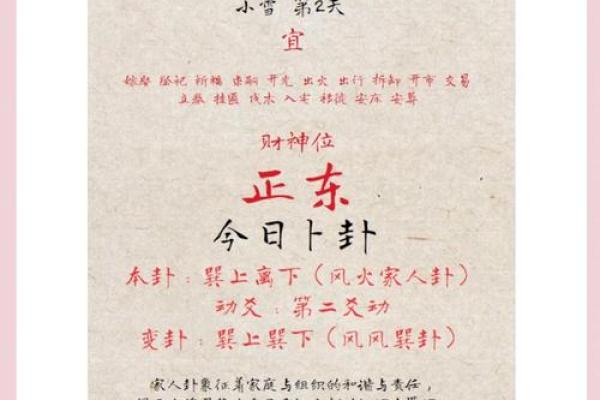 小雪 第2天
宜
嫁娶 祭祀 祈福 求嗣 开光 出火 出行 拆卸 开市 交易
立券 挂匾 伐木 入宅 移徙 安床 安葬
财神位
正东
今日卜卦
本卦：巽上离下（风火家人卦）
动爻：第二爻动
变卦：巽上巽下（风风巽卦）
家人卦象征着家庭与组织的和谐与责任，